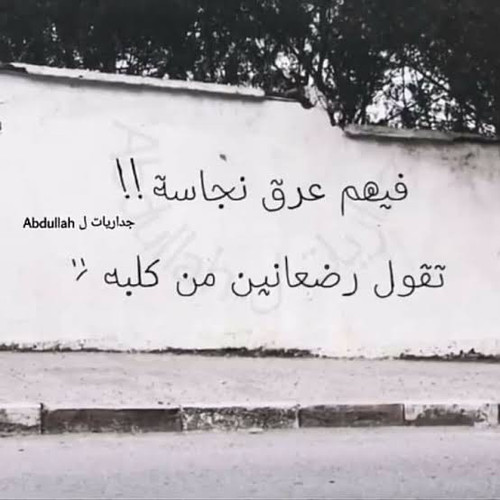 فيهم عرق نجاسة!!
جداريات ل Abdullah
تقول رضعانين من كلبه